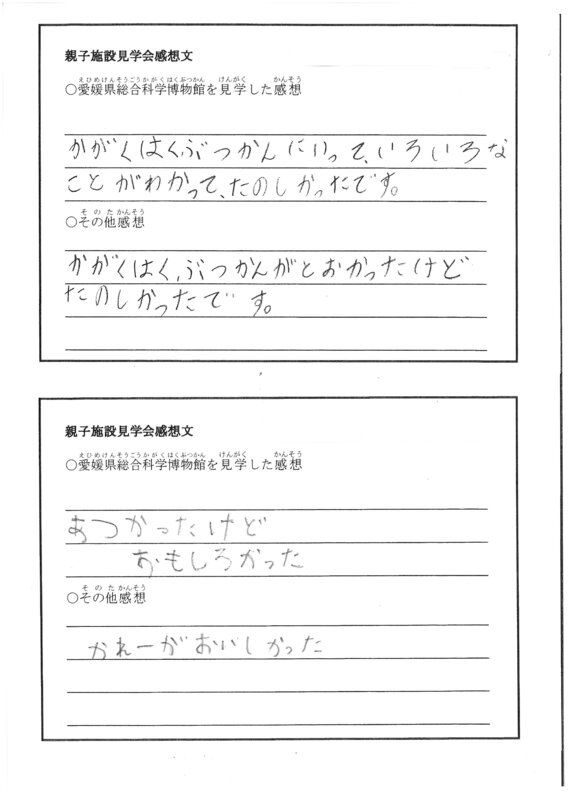 親子施設見学会感想文
○愛媛県総合科学博物館を見学した感想
かがくはくぶつかんにいって、いろいろな
ことがわかって、たのしかったです。
○その他感想
かがくはくぶつかんがとおかったけど
たのしかったです。
親子施設見学会感想文
○愛媛県総合科学博物館を見学した感想
あつかったけど
おもしろかった
○その他感想
かれーがおいしかった